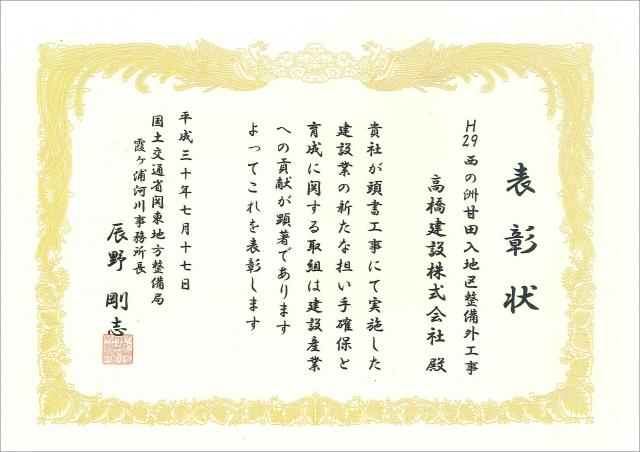 表彰状
H29西の洲甘田入地区整備外工事
高橋建設株式会社 殿
貴社が頭書工事にて実施した
建設業の新たな担い手確保と
育成に関する取組は建設産業
への貢献が顕著であります
よってこれを表彰します
平成三十年七月十七日
国土交通省関東地方整備局
霞ヶ浦河川事務所長
辰野 剛志